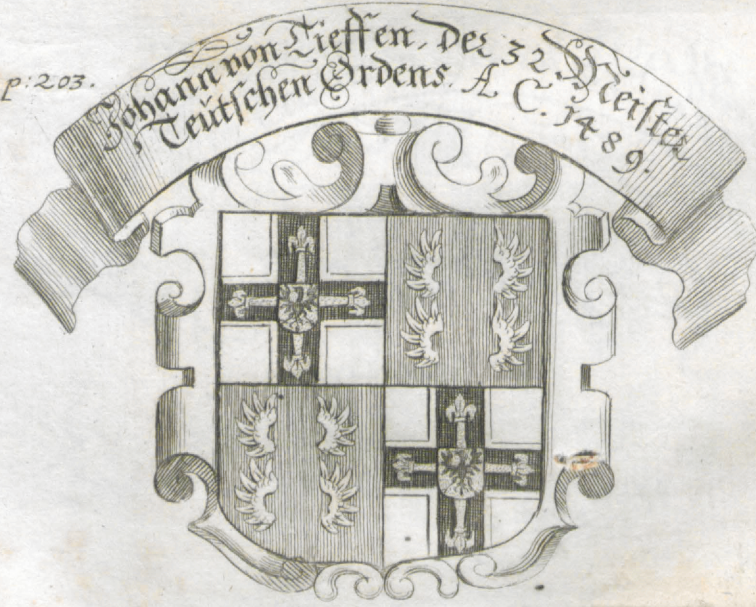 p: 203.
Johann von Tieffen, der 32 Meister
Teütschen Ordens. A C. 1489.